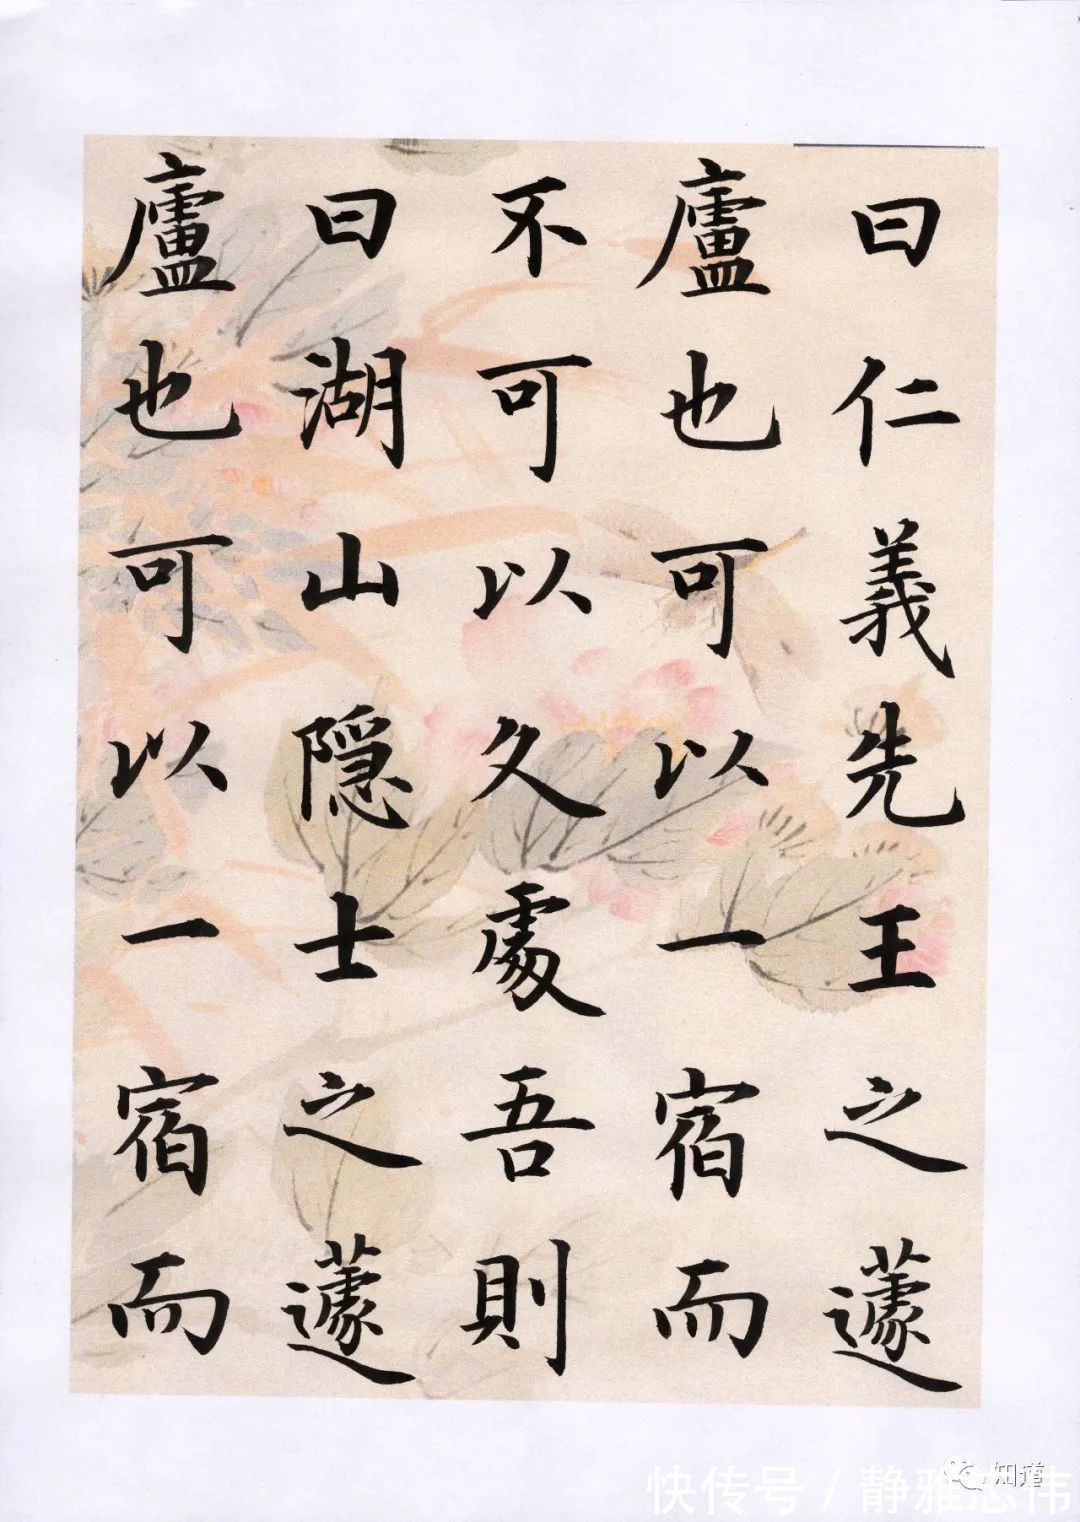 曰仁義先王之蘧
廬也可以一宿而
不可以久處吾則
曰湖山隱士之蘧
廬也可以一宿而
快传号 / 静雅志伟
知道